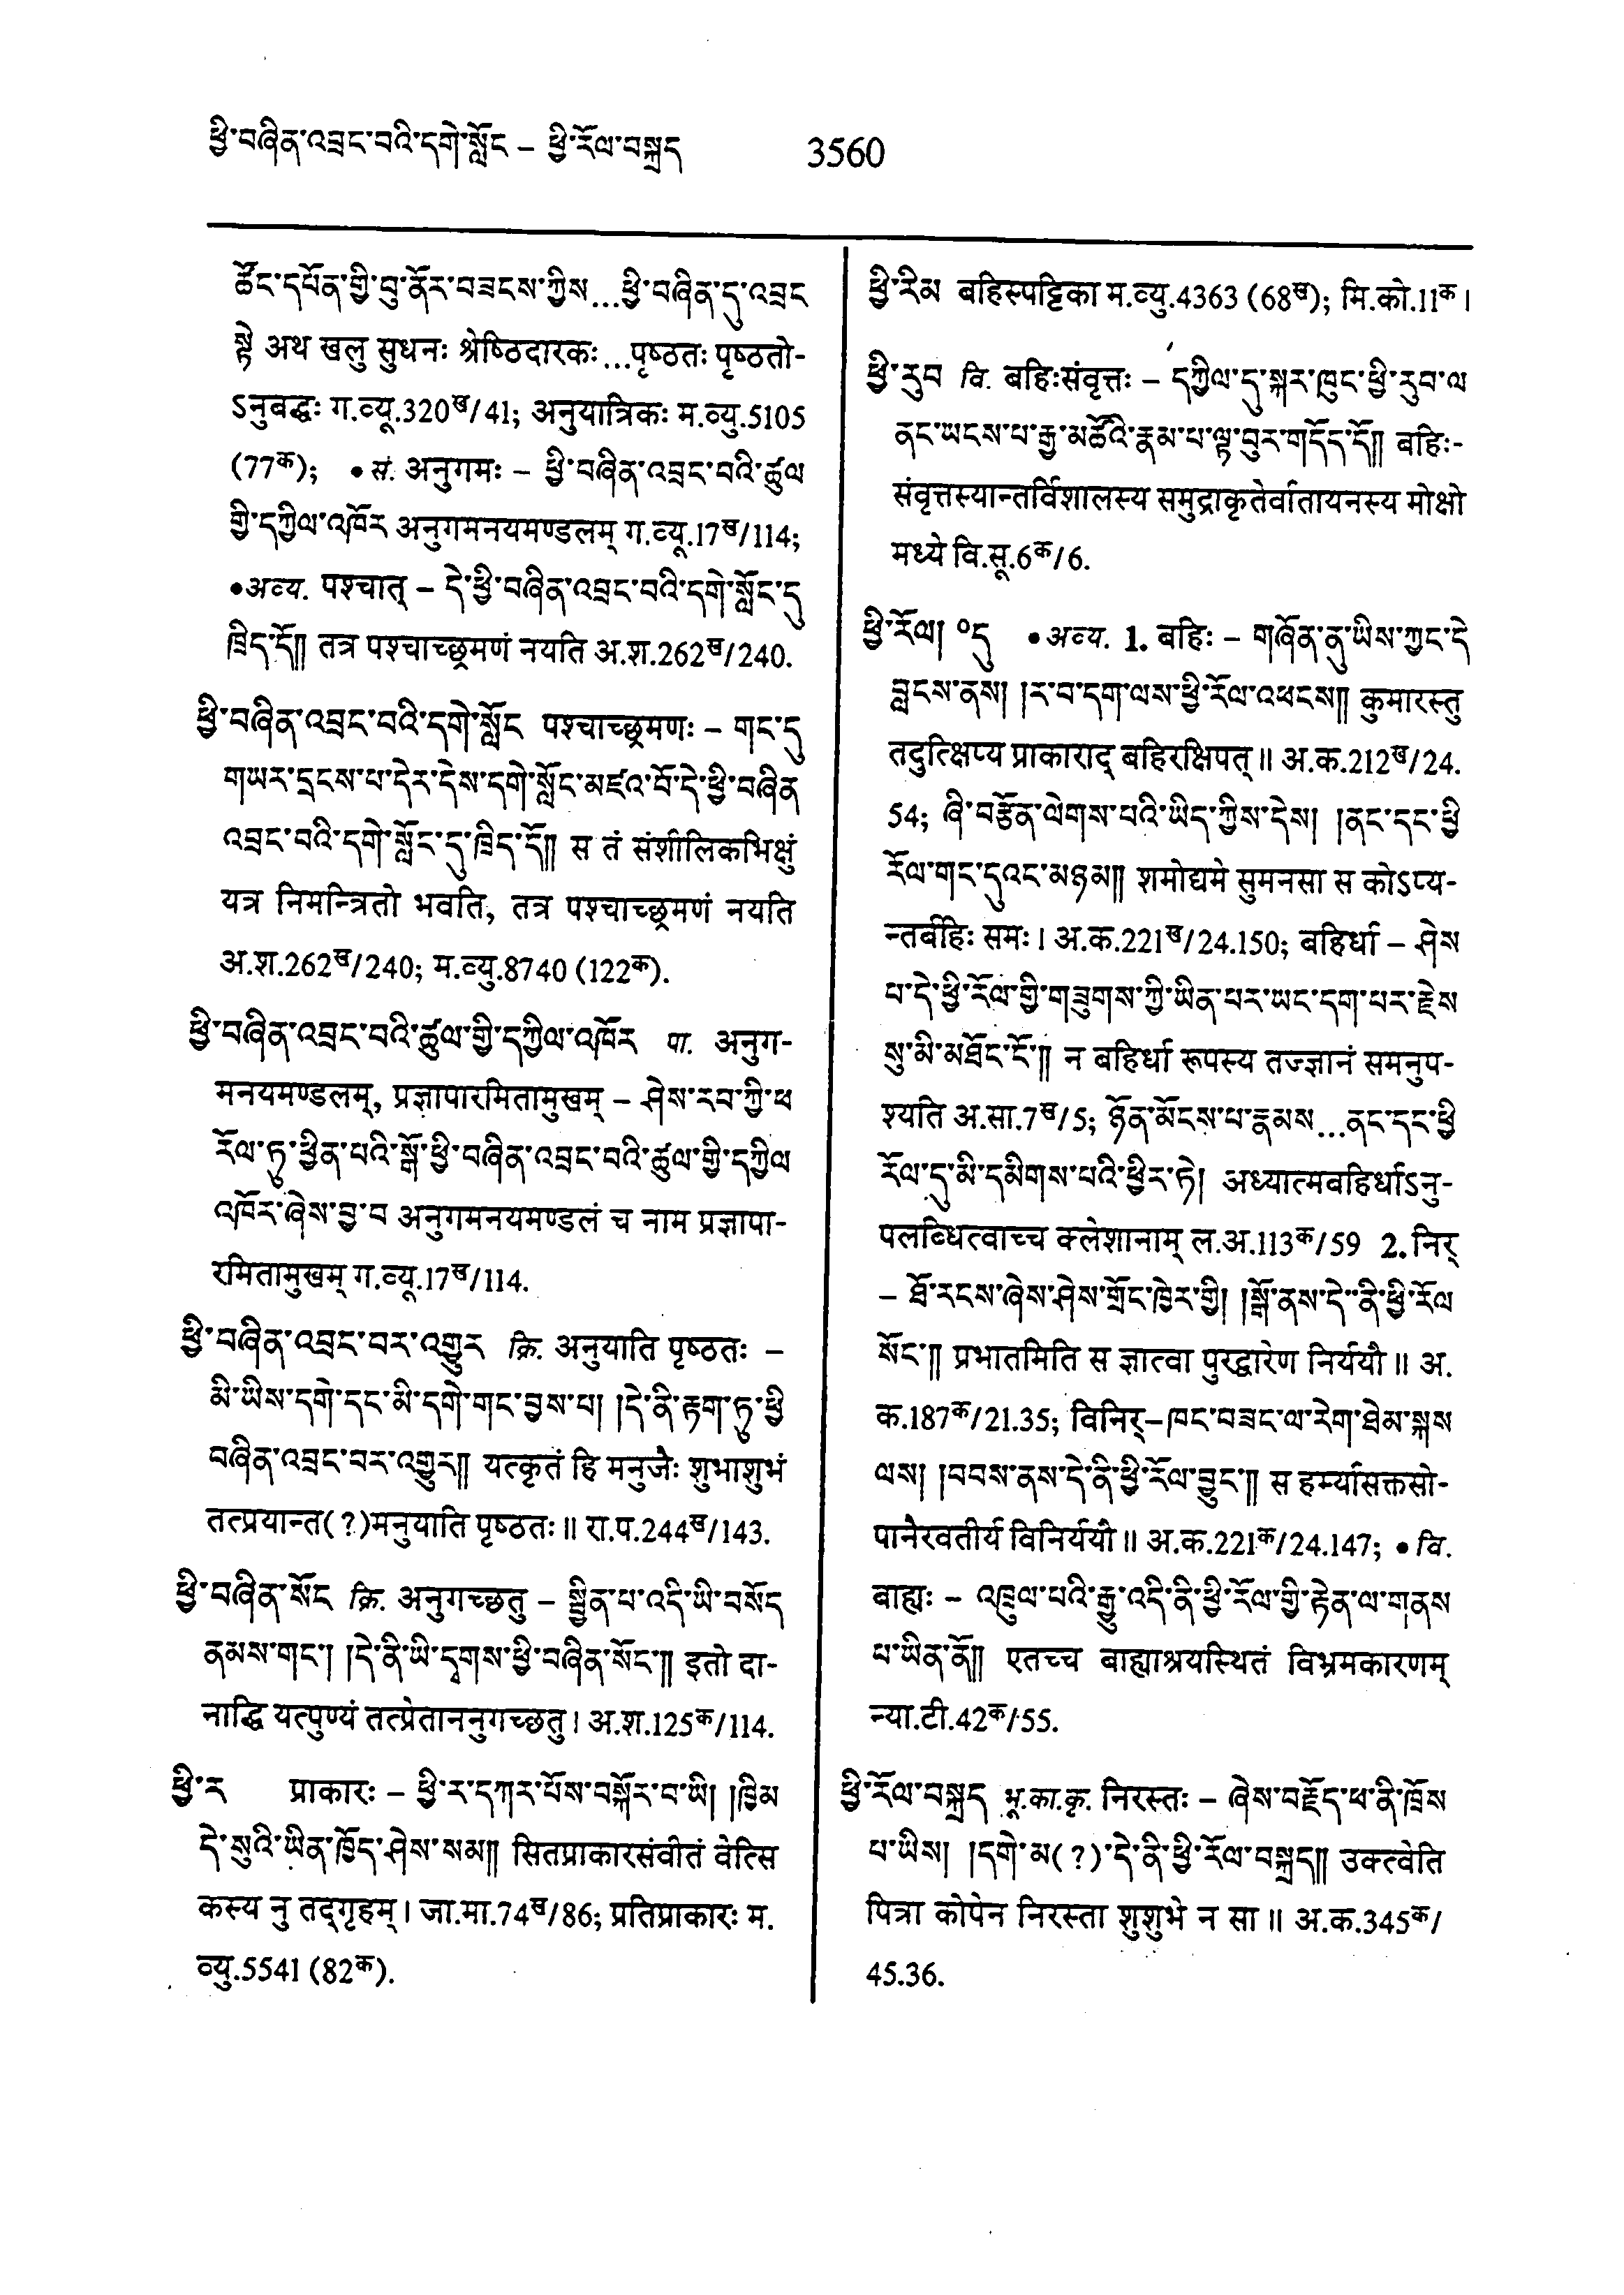 ཕྱི་བཞིན་འབྲང་བའི་དགེ་སློང – ཕྱི་རོལ་བསྐྲད 3560
ཚོང་དཔོན་གྱི་བུ་ནོར་བཟངས་ཀྱིས...ཕྱི་བཞིན་དུ་འབྲང
སྟེ अथ खलु सुधनः श्रेष्ठिदारकः...पृष्ठतः पृष्ठतो-
ऽनुबद्धः ग.व्यू.320ख/41; अनुयात्रिकः म.व्यु.5105
(77क); • सं. अनुगमः – ཕྱི་བཞིན་འབྲང་བའི་ཚུལ
གྱི་དཀྱིལ་འཁོར अनुगमनयमण्डलम् ग.व्यू.17ख/114;
•अव्य. पश्चात् – དེ་ཕྱི་བཞིན་འབྲང་བའི་དགེ་སློང་དུ
ཁྲིད་དོ།། तत्र पश्चाच्छ्रमणं नयति अ.श.262ख/240.
ཕྱི་བཞིན་འབྲང་བའི་དགེ་སློང पश्चाच्छ्रमणः – གང་དུ
གཡར་དྲངས་པ་དེར་དེས་དགེ་སློང་མཛའ་བོ་དེ་ཕྱི་བཞིན
འབྲང་བའི་དགེ་སློང་དུ་ཁྲིད་དོ།། स तं संशीलिकभिक्षुं
यत्र निमन्त्रितो भवति, तत्र पश्चाच्छ्रमणं नयति
अ.श.262ख/240; म.व्यु.8740 (122क).
ཕྱི་བཞིན་འབྲང་བའི་ཚུལ་གྱི་དཀྱིལ་འཁོར पा. अनुग-
मनयमण्डलम्, प्रज्ञापारमितामुखम् – ཤེས་རབ་ཀྱི་ཕ
རོལ་ཏུ་ཕྱིན་པའི་སྒོ་ཕྱི་བཞིན་འབྲང་བའི་ཚུལ་གྱི་དཀྱིལ
འཁོར་ཞེས་བྱ་བ अनुगमनयमण्डलं च नाम प्रज्ञापा-
रमितामुखम् ग.व्यू.17ख/114.
ཕྱི་བཞིན་འབྲང་བར་འགྱུར क्रि. अनुयाति पृष्ठतः –
མི་ཡིས་དགེ་དང་མི་དགེ་གང་བྱས་པ། །དེ་ནི་རྟག་ཏུ་ཕྱི
བཞིན་འབྲང་བར་འགྱུར།། यत्कृतं हि मनुजैः शुभाशुभं
तत्प्रयान्त(?)मनुयाति पृष्ठतः॥ रा.प.244ख/143.
ཕྱི་བཞིན་སོང क्रि. अनुगच्छतु – སྦྱིན་པ་འདི་ཡི་བསོད
ནམས་གང་། །དེ་ནི་ཡི་དྭགས་ཕྱི་བཞིན་སོང་།། इतो दा-
नाद्धि यत्पुण्यं तत्प्रेताननुगच्छतु। अ.श.125क/114.
ཕྱི་ར प्राकारः – ཕྱི་ར་དཀར་པོས་བསྐོར་བ་ཡི། །ཁྱིམ
དེ་སུའི་ཡིན་ཁྱོད་ཤེས་སམ།། सितप्राकारसंवीतं वेत्सि
कस्य नु तद्गृहम्। जा.मा.74ख/86; प्रतिप्राकारः म.
व्यु.5541 (82क).
ཕྱི་རིམ बहिस्पट्टिका म.व्यु.4363 (68ख); मि.को.11क।
ཕྱི་རུབ वि. बहिःसंवृत्तः – དཀྱིལ་དུ་སྐར་ཁུང་ཕྱི་རུབ་ལ
ནང་ཡངས་པ་རྒྱ་མཚོའི་རྣམ་པ་ལྟ་བུར་གདོད་དོ།། बहिः-
संवृत्तस्यान्तर्विशालस्य समुद्राकृतेर्वातायनस्य मोक्षो
मध्ये वि.सू.6क/6.
ཕྱི་རོལ། °དུ •अव्य. 1. बहिः – གཞོན་ནུ་ཡིས་ཀྱང་དེ
བླངས་ནས། །ར་བ་དག་ལས་ཕྱི་རོལ་འཕངས།། कुमारस्तु
तदुत्क्षिप्य प्राकाराद् बहिरक्षिपत्॥ अ.क.212ख/24.
54; ཞི་བརྩོན་ལེགས་པའི་ཡིད་ཀྱིས་དེས། །ནང་དང་ཕྱི
རོལ་གང་དུའང་མཉམ།། शमोद्यमे सुमनसा स कोऽप्य-
न्तर्बहिः समः। अ.क.221ख/24.150; बहिर्धा – ཤེས
པ་དེ་ཕྱི་རོལ་གྱི་གཟུགས་ཀྱི་ཡིན་པར་ཡང་དག་པར་རྗེས
སུ་མི་མཐོང་ངོ་།། न बहिर्धा रूपस्य तज्ज्ञानं समनुप-
श्यति अ.सा.7ख/5; ཉོན་མོངས་པ་རྣམས...ནང་དང་ཕྱི
རོལ་དུ་མི་དམིགས་པའི་ཕྱིར་ཏེ། अध्यात्मबहिर्धाऽनु-
पलब्धित्वाच्च क्लेशानाम् ल.अ.113क/59 2. निर्
– ཐོ་རངས་ཞེས་ཤེས་གྲོང་ཁྱེར་གྱི། །སྒོ་ནས་དེ་ནི་ཕྱི་རོལ
སོང་།། प्रभातमिति स ज्ञात्वा पुरद्वारेण निर्ययौ॥ अ.
क.187क/21.35; विनिर्–ཁང་བཟང་ལ་རེག་ཐེམ་སྐས
ལས། །བབས་ནས་དེ་ནི་ཕྱི་རོལ་བྱུང་།། स हर्म्यासक्तसो-
पानैरवतीर्य विनिर्ययौ॥ अ.क.221क/24.147; • वि.
बाह्यः – འཁྲུལ་པའི་རྒྱུ་འདི་ནི་ཕྱི་རོལ་གྱི་རྟེན་ལ་གནས
པ་ཡིན་ནོ།། एतच्च बाह्याश्रयस्थितं विभ्रमकारणम्
न्या.टी.42क/55.
ཕྱི་རོལ་བསྐྲད भू.का.कृ. निरस्तः – ཞེས་བརྗོད་ཕ་ནི་ཁྲོས
པ་ཡིས། །དགེ་མ(?)་དེ་ནི་ཕྱི་རོལ་བསྐྲད།། उक्त्वेति
पित्रा कोपेन निरस्ता शुशुभे न सा॥ अ.क.345क/
45.36.